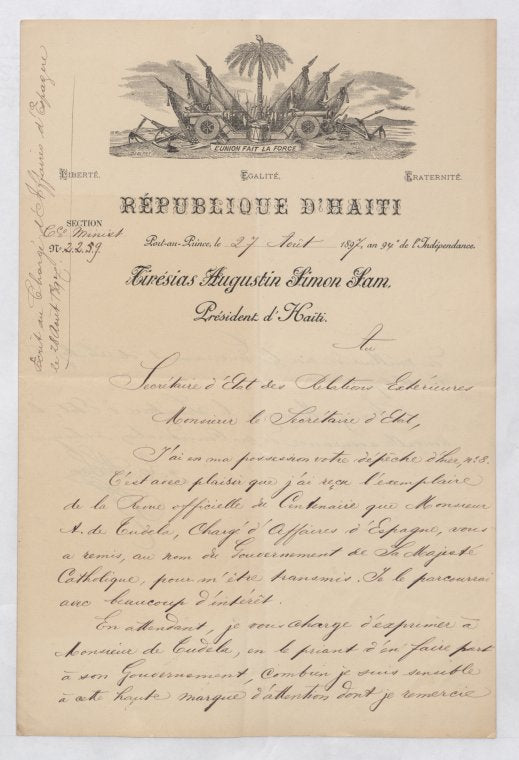 L'UNION FAIT LA FORCE
LIBERTÉ. EGALITÉ. FRATERNITÉ.
RÉPUBLIQUE D'HAITI
SECTION
Nº 2259.
Port-au-Prince, le 27 Août 1897, an 94e de l'Indépendance.
Tirésias Augustin Simon Sam,
Président d'Haïti.
Au
Secrétaire d'Etat des Relations Extérieures
Monsieur le Secrétaire d'Etat,
J'ai en ma possession votre dépêche d'hier, nº 8.
C'est avec plaisir que j'ai reçu l'exemplaire
de la Revue officielle du Centenaire que Monsieur
A. de Tudela, Chargé d'Affaires d'Espagne, vous
a remis, au nom du Gouvernement de Sa Majesté
Catholique, pour m'être transmis. Je le parcourrai
avec beaucoup d'intérêt.
En attendant, je vous charge d'exprimer à
Monsieur de Tudela, en le priant d'en faire part
à son Gouvernement, combien je suis sensible
à cette haute marque d'attention dont je remercie
Ecrit au Chargé d'Affaires d'Espagne
le 28 Août 1897